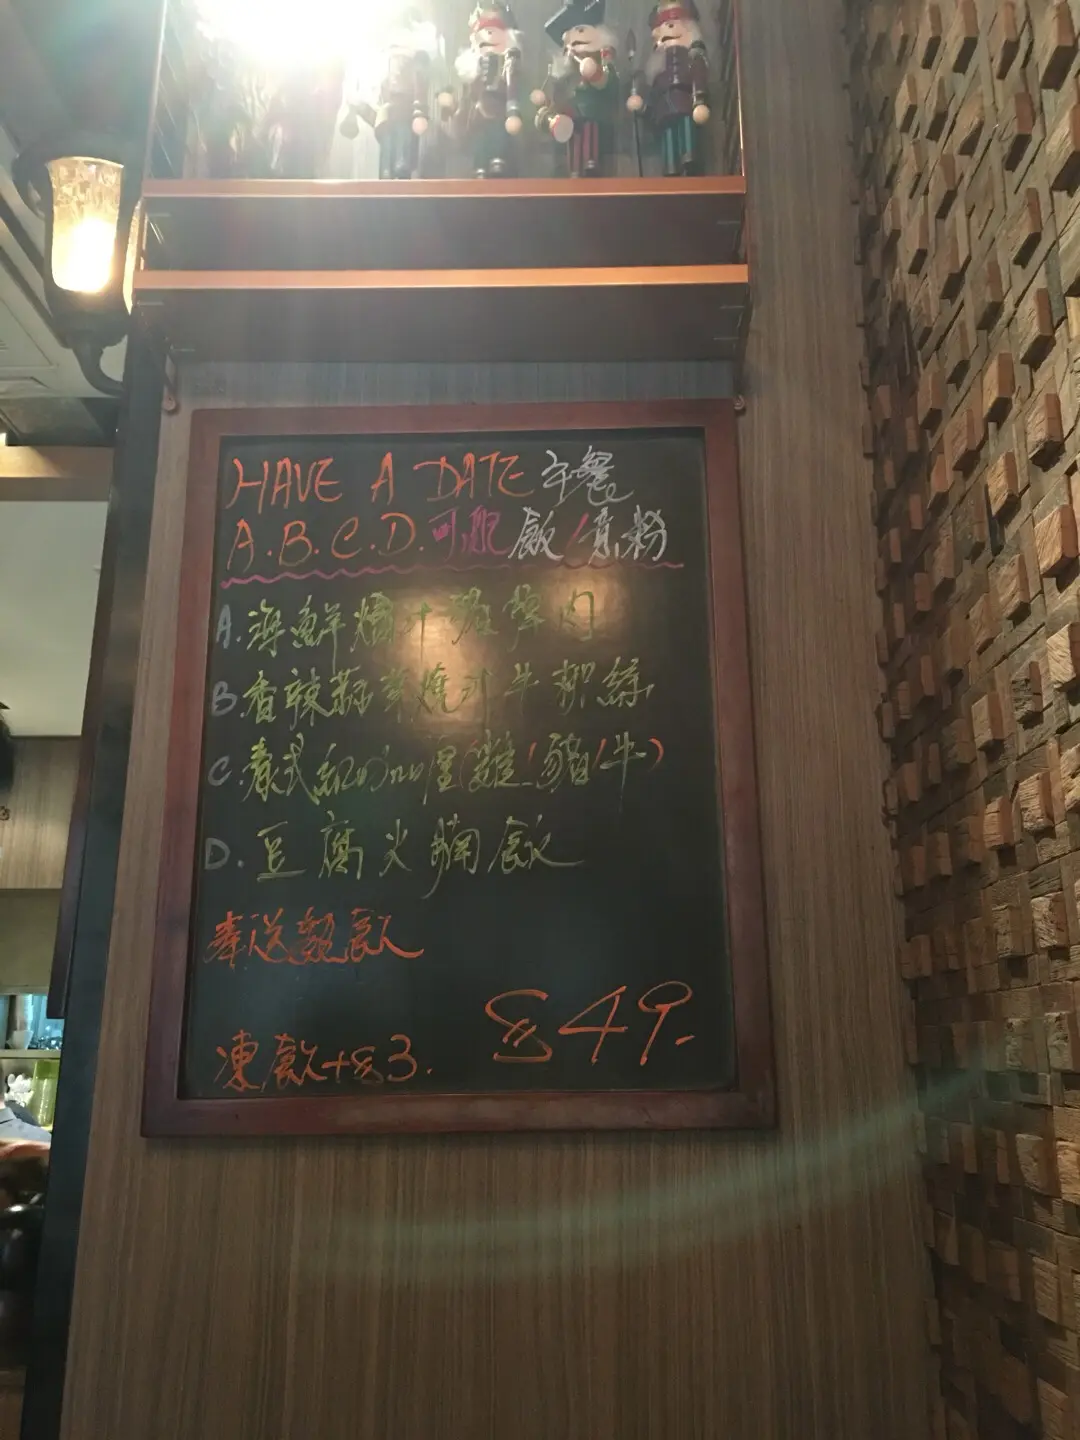 HAVE A DATE 午餐
A.B.C.D. 可配 飯/意粉
A. 海鮮燴汁豬?肉
B. 香辣蒜?燒汁牛柳絲
C. 泰式紅咖喱(雞/豬/牛)
D. 豆腐火腩飯
奉送熱飲
凍飲+$3.
$49.-